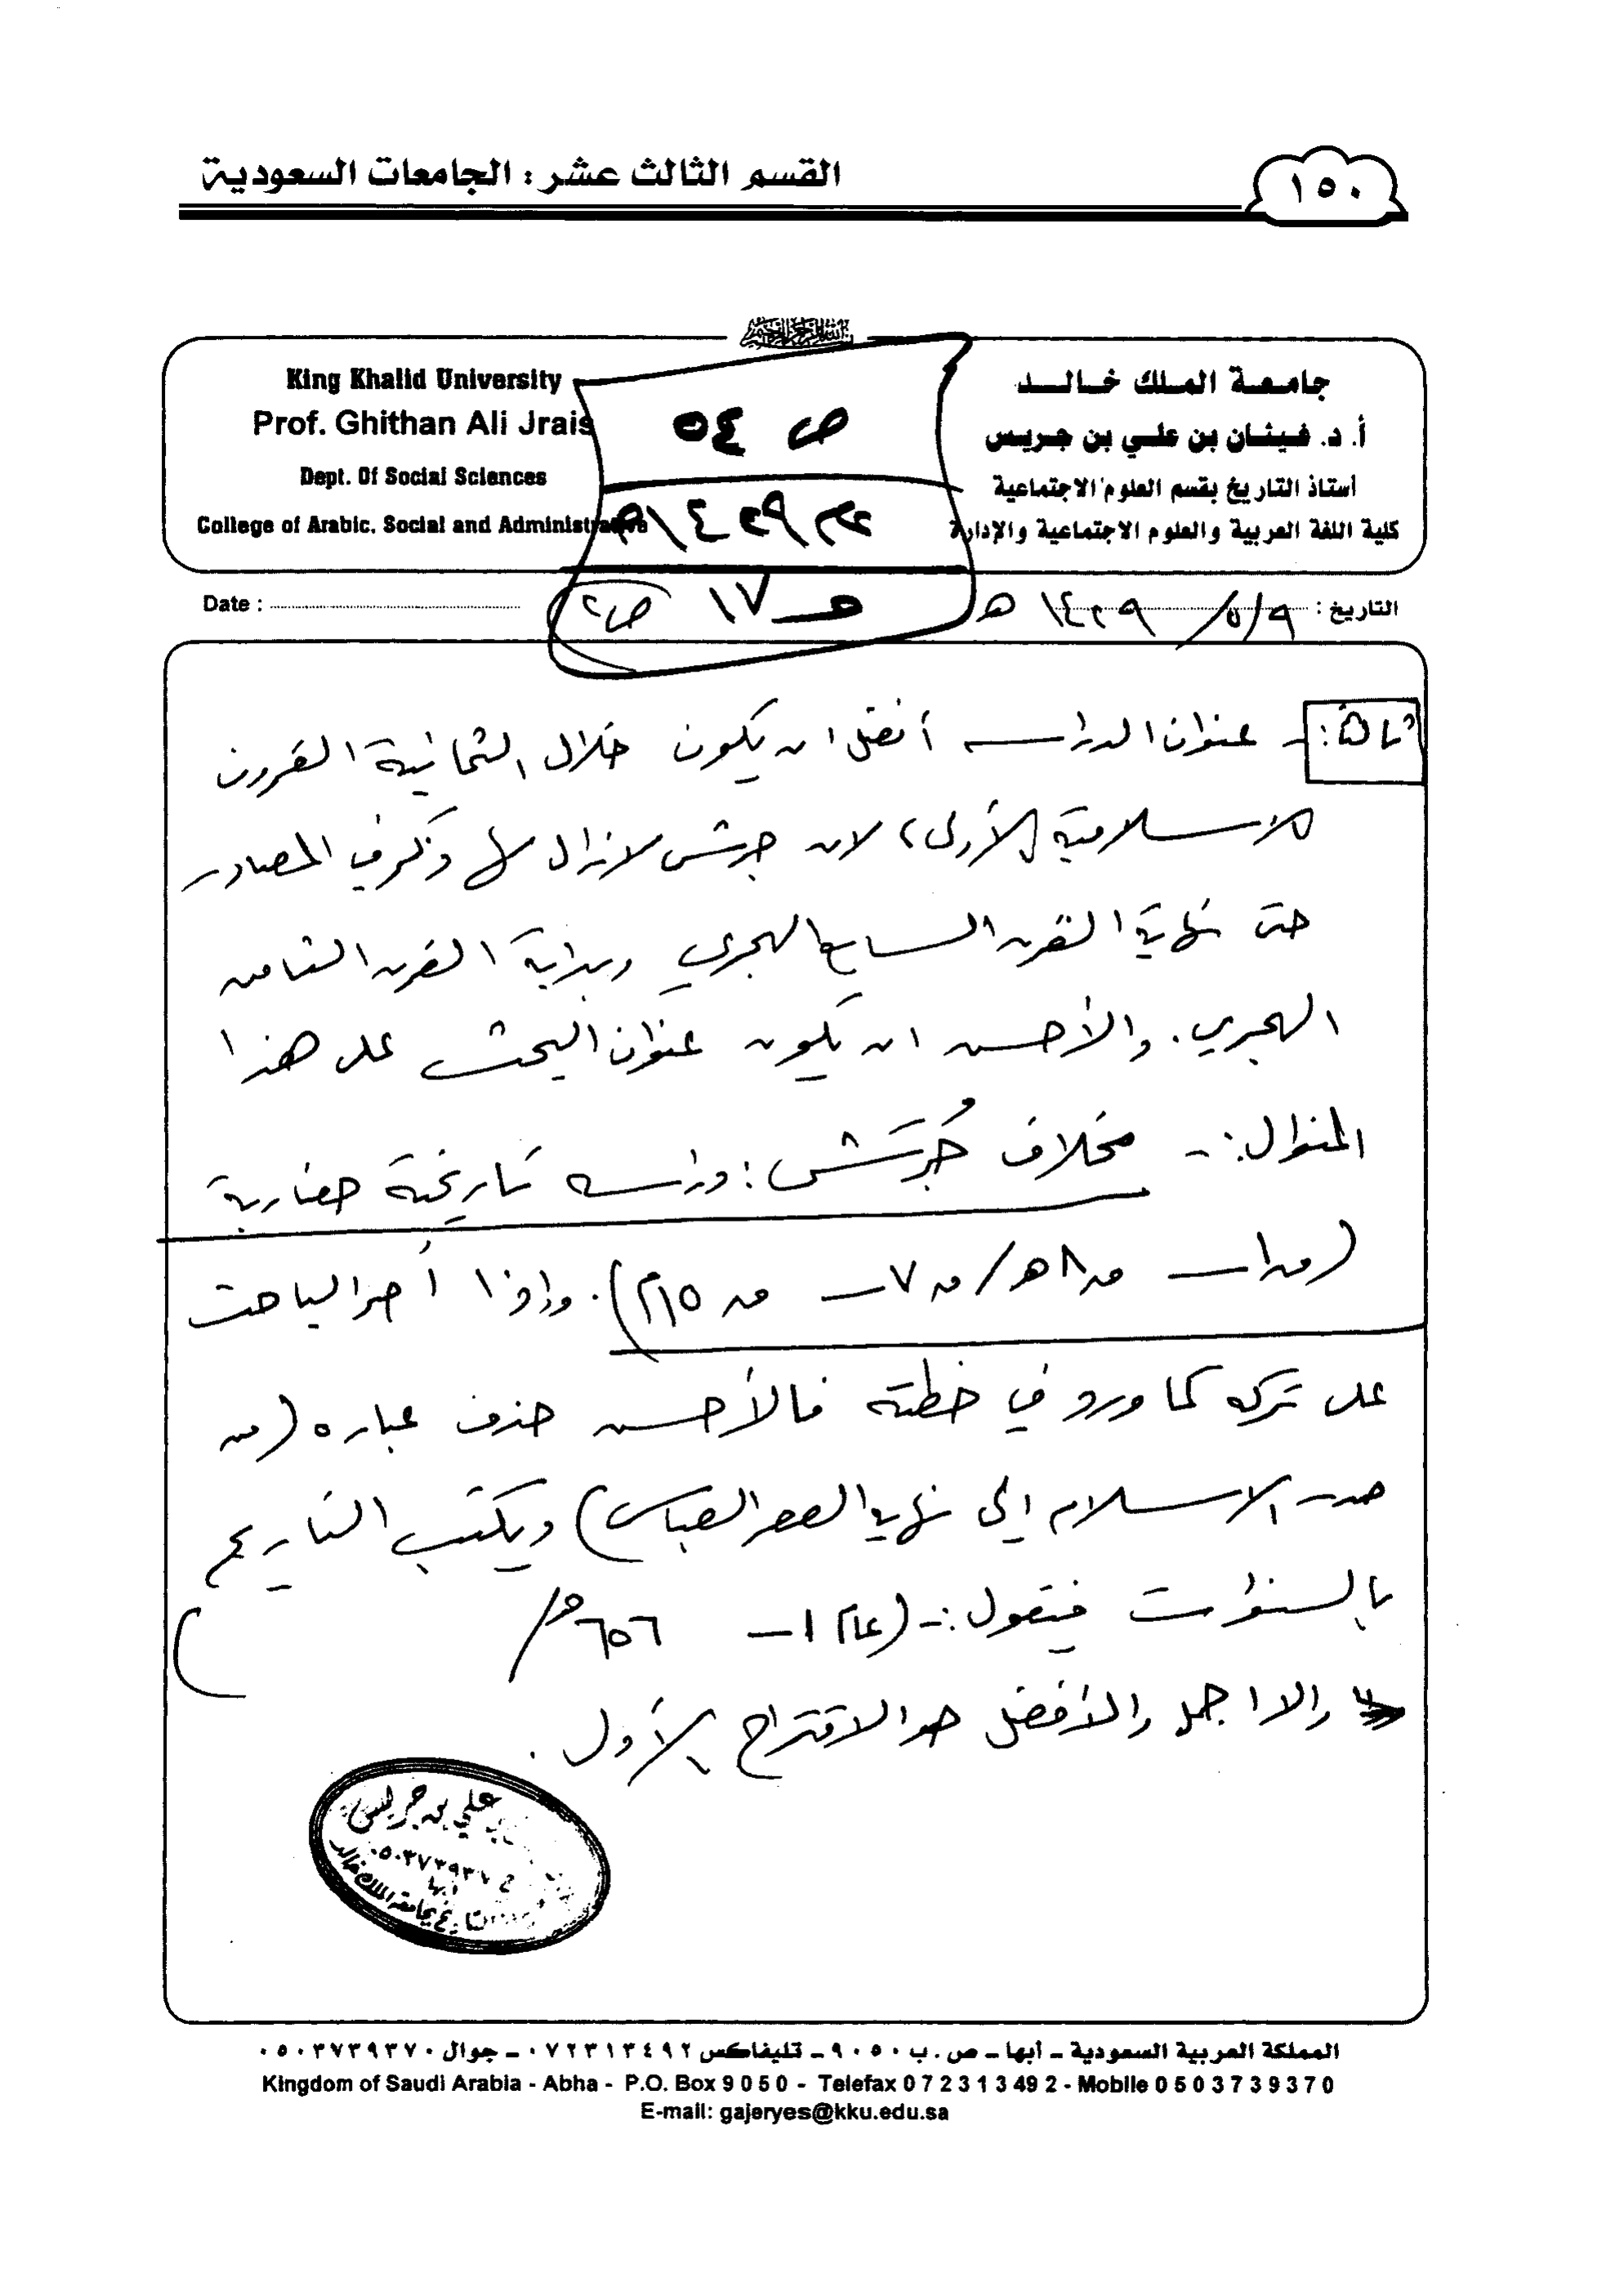 القسم الثالث عشر : الجامعات السعودية
١٥٠
جامعة الملك خالد
أ. د. غيثان بن علي بن جريس
أستاذ التاريخ بقسم العلوم الاجتماعية
كلية اللغة العربية والعلوم الاجتماعية والإدارة
King Khalid University
Prof. Ghithan Ali Jrais
Dept. Of Social Sciences
College of Arabic. Social and Administrative
ص ٥٤
١٧ ص٢
التاريخ : ٩/٥/ ١٤٢٩ هـ
Date :
ثالثاً :- عنوان الدراسه أفضل ان يكون خلال الثمانية القرون
الاسلامية الأولى، لان جرش لازال لها ذكر في المصادر
حتى نهاية القرن السابع الهجري وبداية القرن الثامن
الهجري. والأحسن ان يكون عنوان البحث على هذا
المنوال :- مخلاف جُرَش : دراسه تاريخية حضارية
(ق١ــ ق٨هـ/ ق٧ــ ق١٥م). وإذا أصر الباحث
على تركه كما ورد في خطته فالأحسن حذف عباره (من
صدر الاسلام الى نهاية العصر العباسي) ويكتب التاريخ
بالسنوات فيقول :- (عام ١ــ ٦٥٦هـ/ )
والاجمل والأفضل هو الاقتراح الأول .
علي بن جريس
أبها
المملكة العربية السعودية ـ أبها ـ ص . ب ٩٠٥٠ ـ تليفاكس ٠٧٢٣١٣٤٩٢ ـ جوال ٠٥٠٣٧٣٩٣٧٠
Kingdom of Saudi Arabia - Abha - P.O. Box 9 0 5 0 - Telefax 0 7 2 3 1 3 49 2 - Mobile 0 5 0 3 7 3 9 3 7 0
E-mail: gajeryes@kku.edu.sa